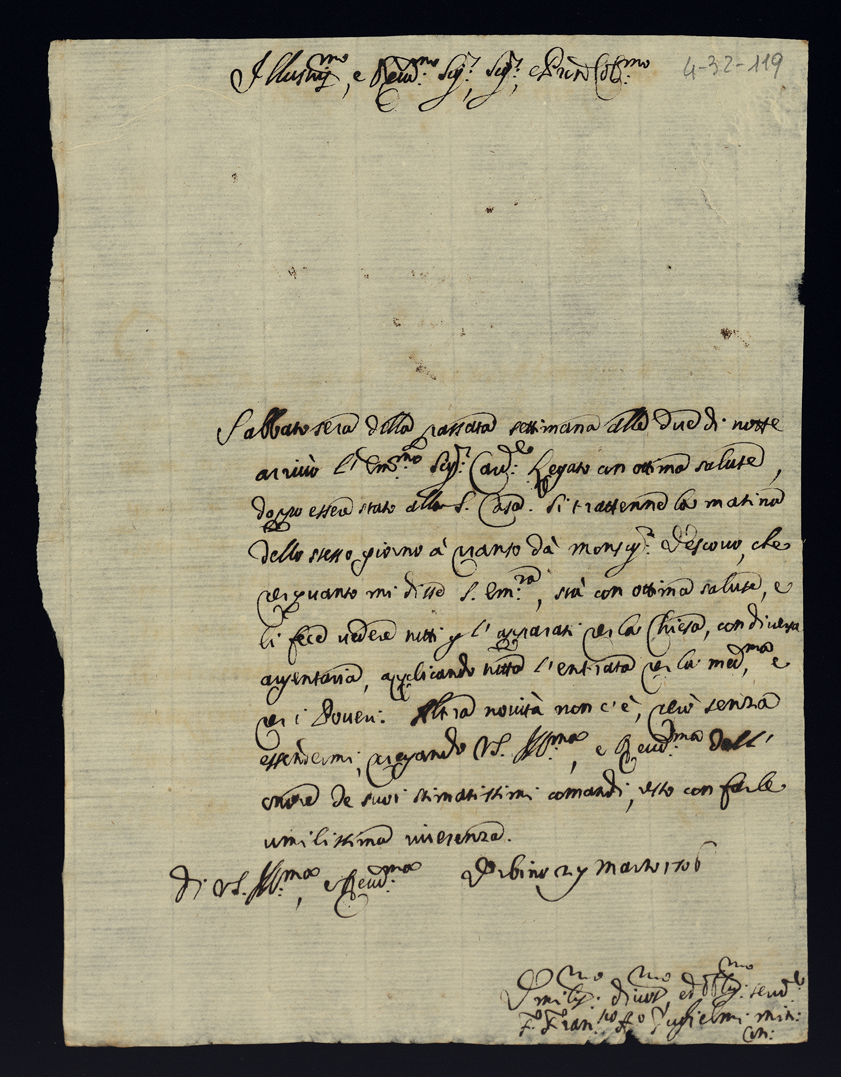 Illustris.mo, e Reud.mo Sig.r, Sig.r, e Prōn Col.mo
4-32-119
Sabbato sera della passata settimana alle due di notte
arriuò l'Em.mo Sig.r Card.le Legato con ottima salute,
doppo essere stato alla S. Casa. Si trattenne la matina
dello stesso giorno à pranso dà Monsig.r Vescouo, che
per quanto mi disse S. Em.za, stà con ottima salute, e
li fece uedere tutti g l'apparati per la Chiesa, con diuersa
argentaria, applicando tutta l'entrata per la med.ma, e
per i Poueri. Altra nouità non c'è, però senza
estendermi, pregando VS. Ill.ma, e Reud.ma dell'
onore de suoi stimatissimi comandi, resto con farle
umilissima riuerenza.
di VS. Ill.ma, e Reud.ma Vrbino 27 Marso 1706
Vmiliss.mo diuot.mo, ed obblig.mo seru.e
F. Fran.co A.o Guglielmi Min:
Con: